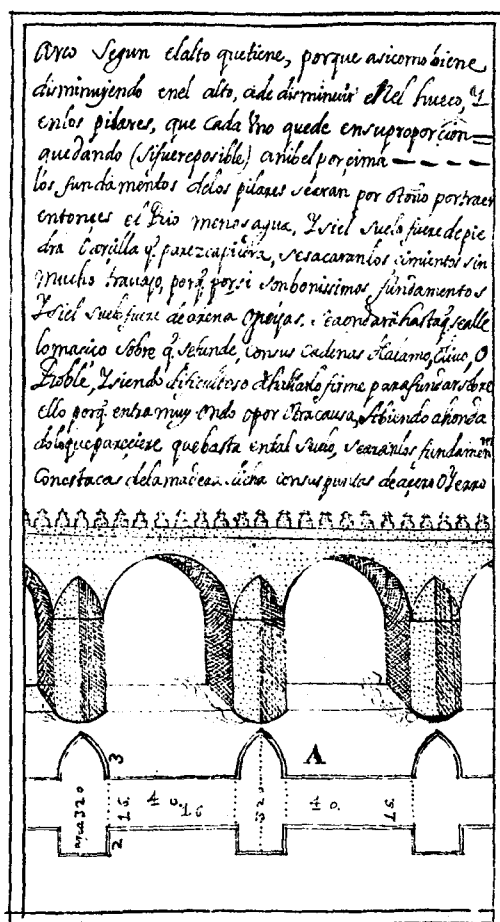 Arco segun el alto que tiene, porque asicomo biene
disminuyendo enel alto, a de disminuir enel hueco, Y
enlos pilares, que cada Uno quede ensuproporcion=
quedando (sifuereposible) anibel por çima
los fundamentos delos pilares searan por otoño portraer
entonçes el Rio menos agua, Ysiel suelo fuere de pie
dra o arcilla q̃ parezca piedra, sesacaranlos çimientos sin
mucho travajo, porq̃ porsi sonbonissimos fundamentos
Ysiel suelo fuere de arena Oguijas, seaondara hasta q̃ sealle
lomaçiço sobre q̃ sefunde, consus Cadenas Alamo, Olivo, O
Roble, Ysiendo dificultoso firme parafundar sobre
ello porq̃ entra muy ondo opor Otra causa, abiendo ahonda
dolo que pareciere que basta ental suelo, searanlos fundamen
Conestacas delamadera dicha consus puntas deaçero OYerro
3 A
320 16. 40. 16 320 40. 16.
2